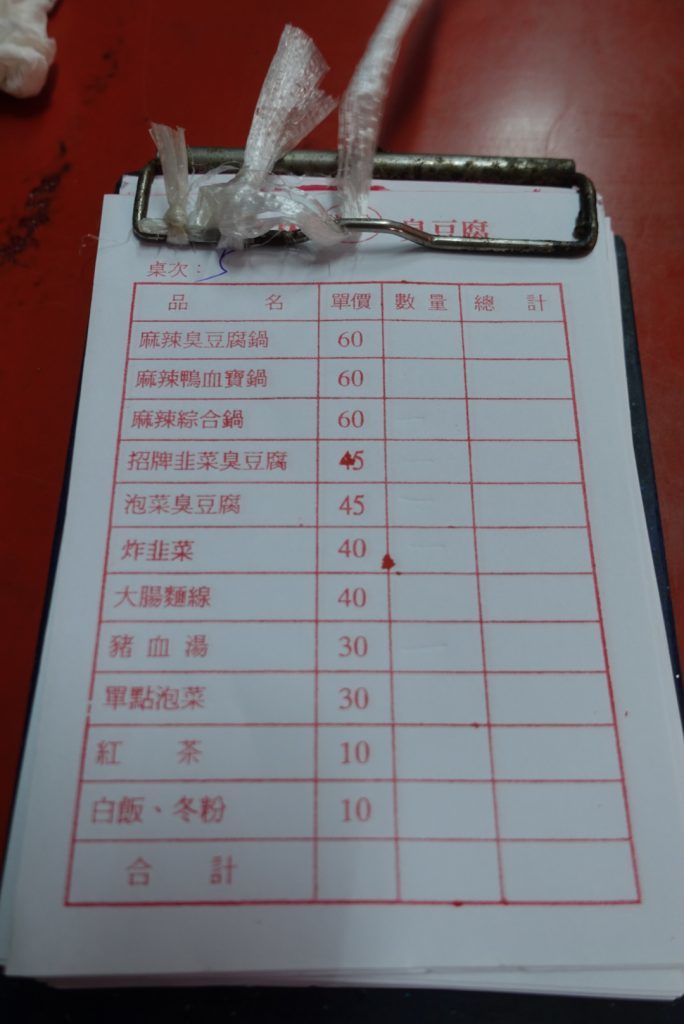 臭豆腐
桌次：5
品 名 單價 數量 總 計
麻辣臭豆腐鍋 60
麻辣鴨血寶鍋 60
麻辣綜合鍋 60
招牌韭菜臭豆腐 45
泡菜臭豆腐 45
炸韭菜 40
大腸麵線 40
豬血湯 30
單點泡菜 30
紅 茶 10
白飯、冬粉 10
合 計